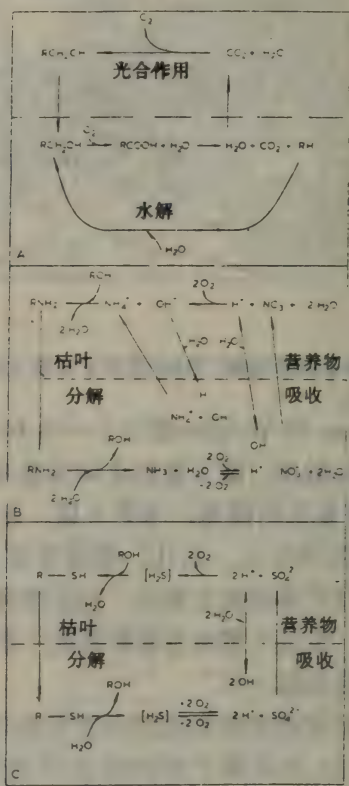 C₂
RCH₂CH CC₂ + H₂C
光合作用
C₂
RCH₂OH RCCOH + H₂O H₂O + CO₂ + RH
水解
H₂O
A
ROH 2O₂
RNH₂ NH₄⁺ + CH⁻ H⁺ + NC₃ + 2H₂O
2H₂O H₂O H₂C
枯叶 营养物
分解 H 吸收
NH₄⁺ + CH
ROH OH
2O₂
RNH₂ NH₃ + H₂O H⁺ NO₃⁻ + 2H₂O
2H₂O -2O₂
B
ROH 2O₂
R — SH [H₂S] 2H⁺ + SO₄²
H₂O 2H₂O
枯叶 营养物
分解 吸收
ROH 2OH
+2O₂
R — SH [H₂S] 2H⁺ + SO₄²⁻
-2O₂
H₂O
C